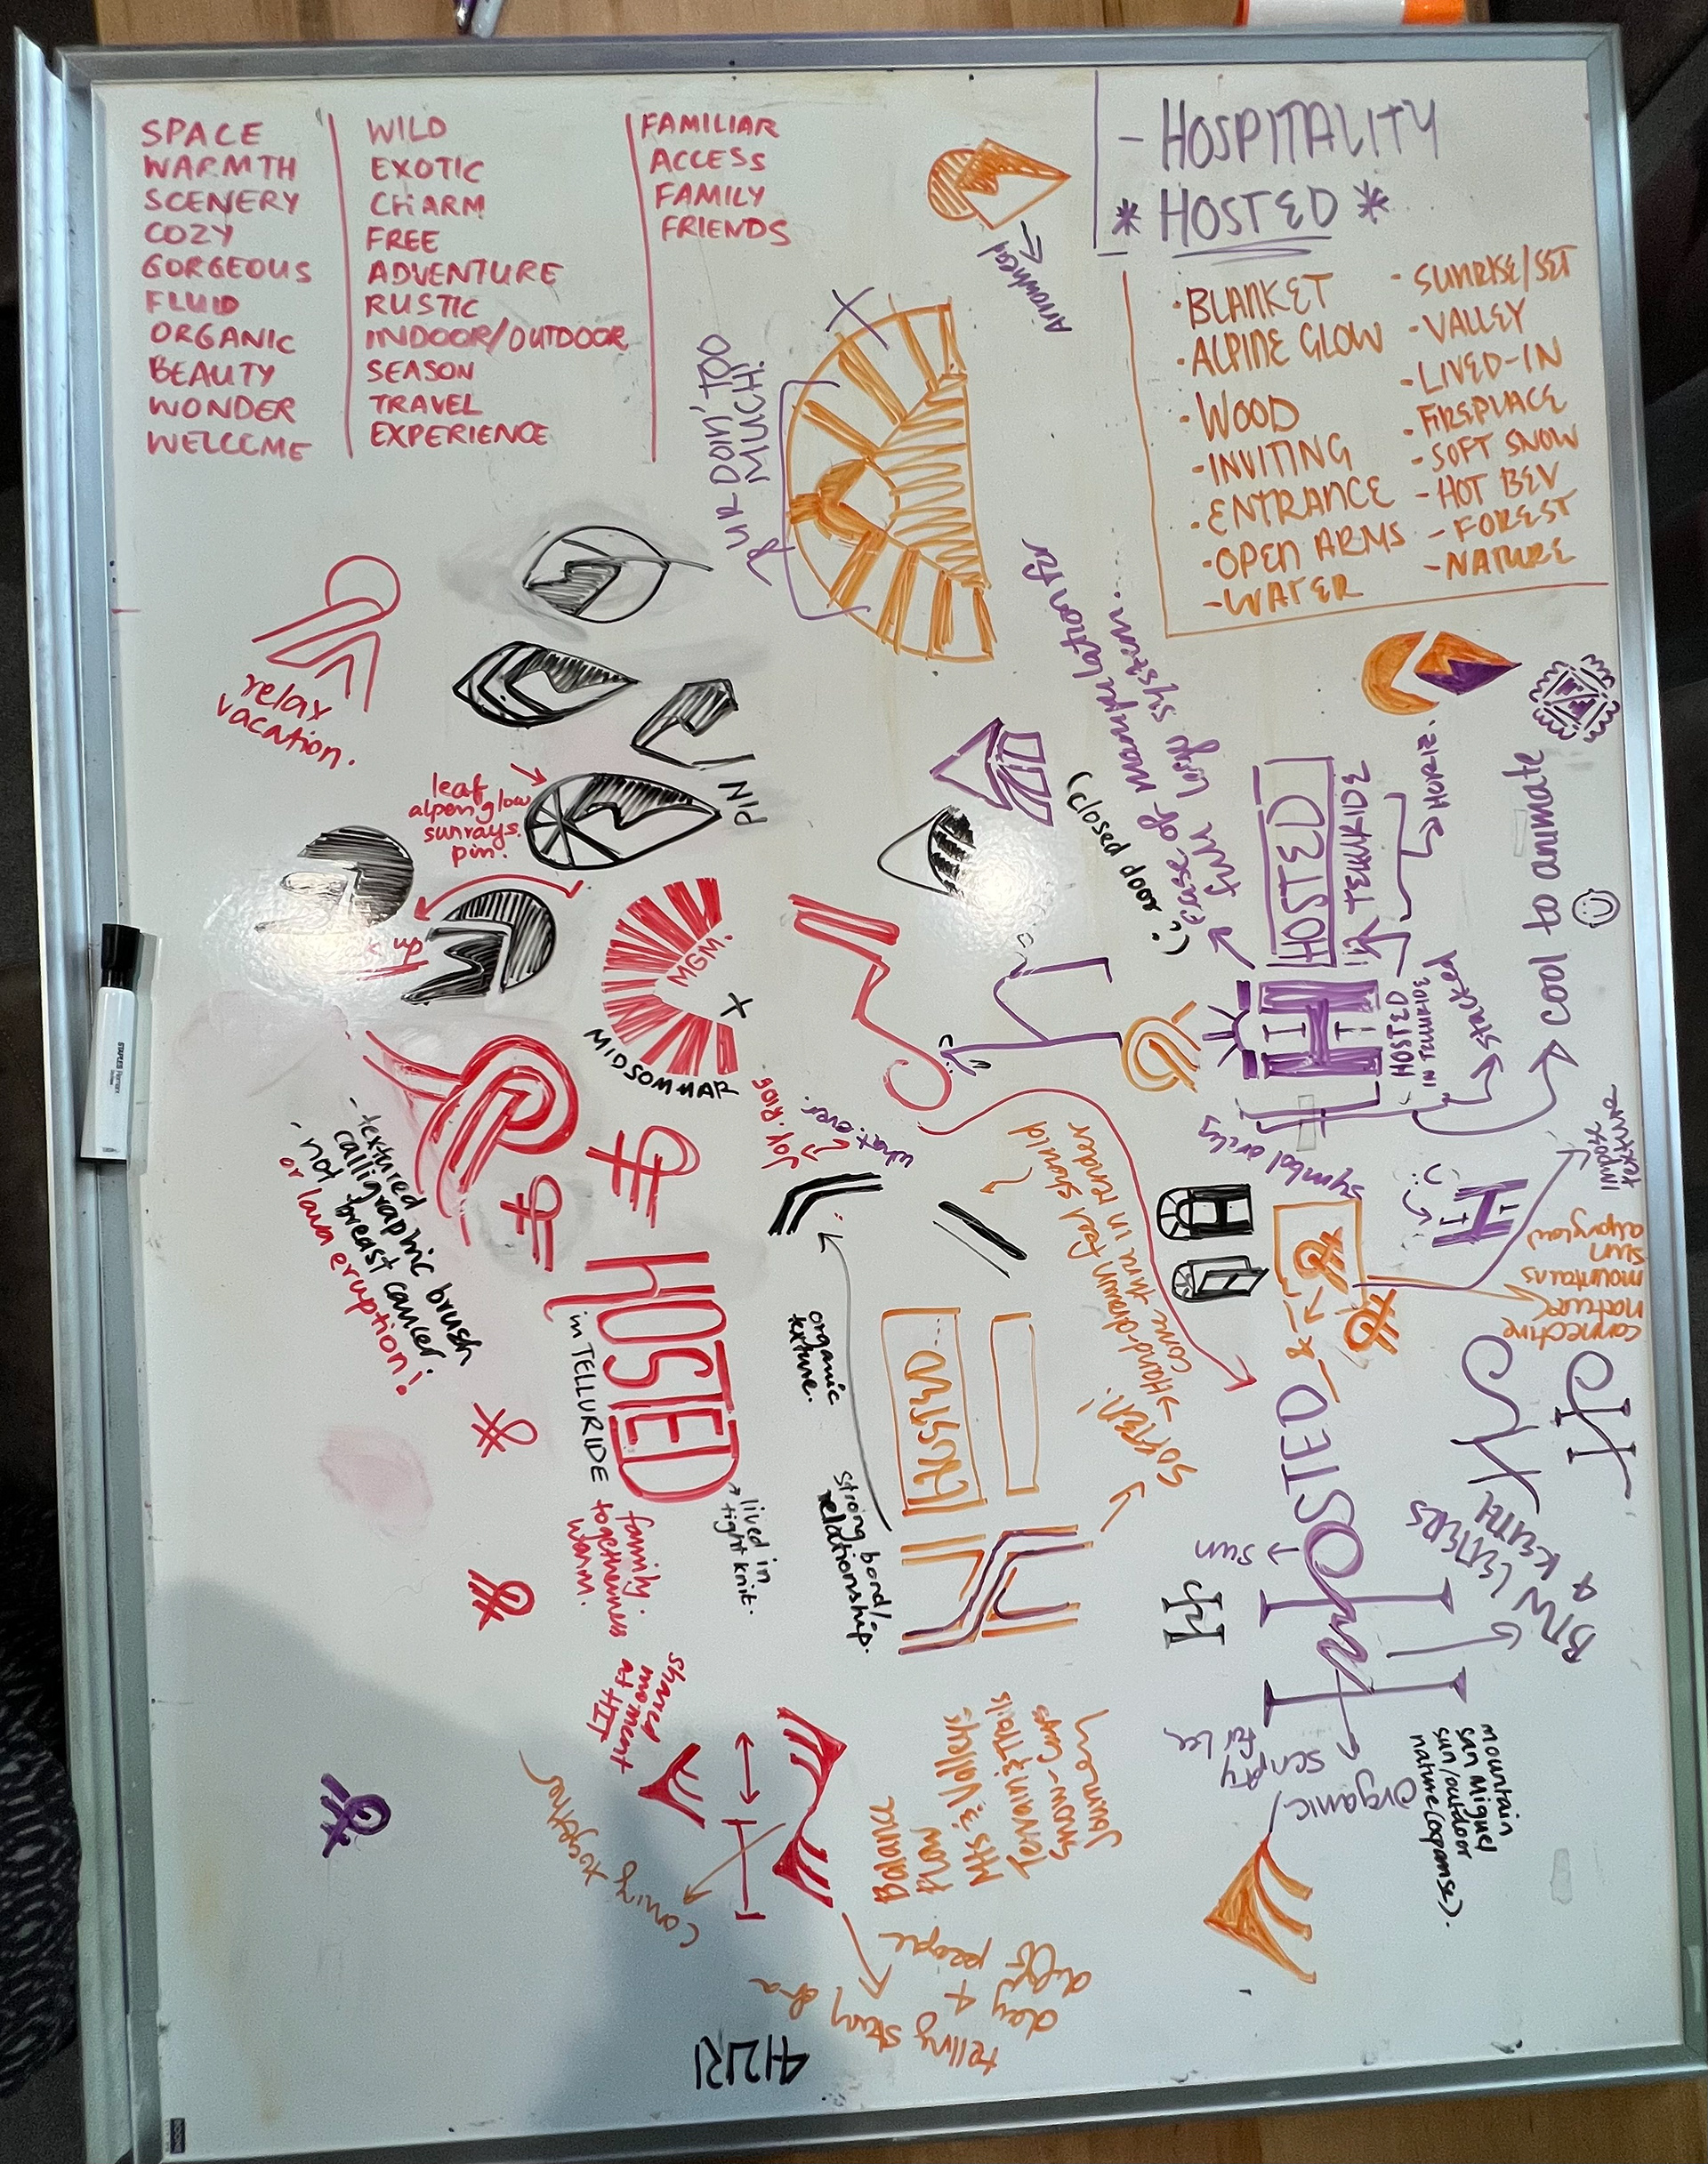 SPACE
WARMTH
SCENERY
COZY
GORGEOUS
FLUID
ORGANIC
BEAUTY
WONDER
WELCOME
WILD
EXOTIC
CHARM
FREE
ADVENTURE
RUSTIC
INDOOR/OUTDOOR
SEASON
TRAVEL
EXPERIENCE
FAMILIAR
ACCESS
FAMILY
FRIENDS
- HOSPITALITY
* HOSTED *
· BLANKET
· ALPINE GLOW
· WOOD
· INVITING
· ENTRANCE
· OPEN ARMS
- WATER
- SUNRISE/SET
- VALLEY
- LIVED-IN
- FIREPLACE
- SOFT SNOW
- HOT BEV
- FOREST
- NATURE
Arrowhead
UR DOIN' TOO
MUCH!
relax
vacation.
leaf
alpenglow
sunrays.
pin.
PIN
up
MGM.
X
MIDSOMMAR
ease of manipulation for
full logo system.
(closed door :()
HOSTED
TELLURIDE
· HORIZ.
cool to animate
H
HOSTED
IN TELLURIDE
stacked
symbol only
impose
texture
connective
nature
mountains
sun
alpenglow
JOY. RIDE
what ever.
- textured
calligraphic brush
- not breast cancer.
or lava eruption!
HOSTED
in TELLURIDE
lived in
tight knit.
family.
togetherness
warm.
organic
texture.
strong bond/
relationship.
HOSTED
Soften!
→ Hand-drawn feel should
come thru in render
HOSTED
sun
BTW LETTERS
H
organic/
scripty
mountain
San Miguel
sun/outdoor
nature(expanse).
shared
moment
at HIT
coming together
Balance
Flow
Mts & Valleys
Terrain & Trails
Snow-Caps
Journey
telling story of a
day +
of people
4121R1